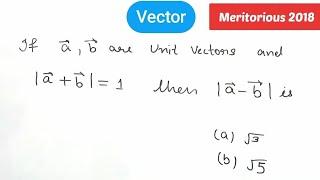 Vector
Meritorious 2018
If a⃗, b⃗ are unit vectors and
|a⃗ + b⃗| = 1 then |a⃗ - b⃗| is
(a) √3
(b) √5